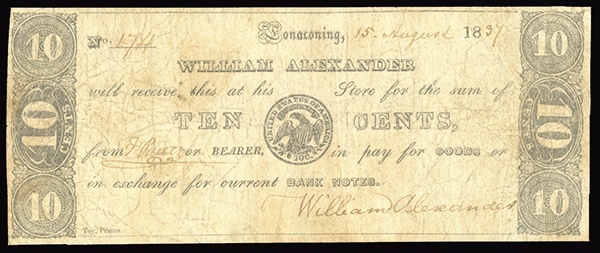 10 No. 174 Lonaconing, 15. August 1837 10
WILLIAM ALEXANDER
will receive this at his Store for the sum of
10 CENTS TEN UNITED STATES OF AMERICA CENTS, 10 CENTS
from or BEARER, in pay for GOODS or
in exchange for current BANK NOTES.
10 William Alexander 10
Toy, Printer